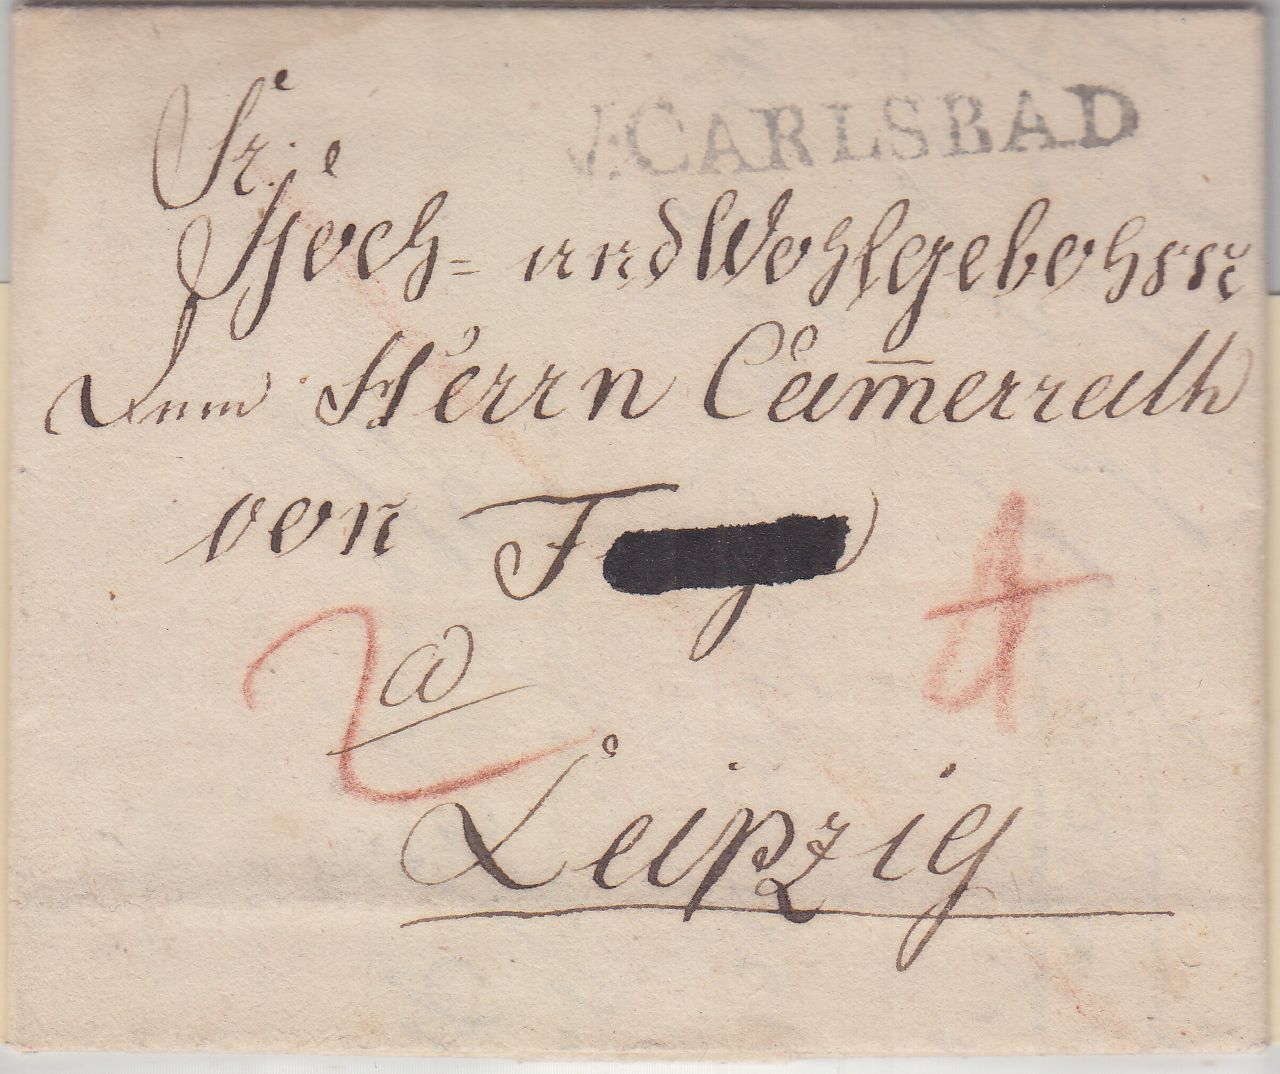 V. CARLSBAD
Sr:
Hoch- und Wohlgebohrn
Dem Herrn Cam̅errath
von
2
a
Leipzig